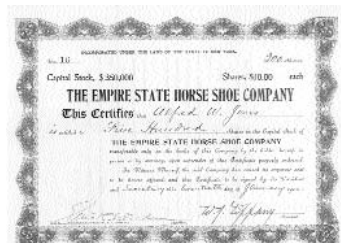 INCORPORATED UNDER THE LAWS OF THE STATE OF NEW YORK.
No.
Capital Stock, $350,000 Shares, $10.00 each
THE EMPIRE STATE HORSE SHOE COMPANY
This Certifies that Alfred W. Jones
is entitled to Five Hundred Shares in the Capital Stock of
THE EMPIRE STATE HORSE SHOE COMPANY
transferable only on the books of this Company by the holder hereof in
person or by attorney upon surrender of this Certificate properly endorsed.
In Witness Whereof, the said Company has caused its corporate seal
to be hereto affixed and this Certificate to be signed by its President
and Secretary this day of January
W. J. Tiffany